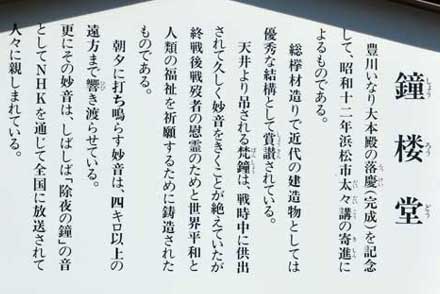 鐘楼堂
しょうろうどう
豊川いなり大本殿の落慶(完成)を記念
して、昭和十二年浜松市太々講の寄進に
よるものである。
総欅材造りで近代の建造物としては
優秀な結構として賞讃されている。
天井より吊される梵鐘は、戦時中に供出
されて久しく妙音をきくことが絶えていたが
終戦後戦歿者の慰霊のためと世界平和と
人類の福祉を祈願するために鋳造された
ものである。
朝夕に打ち鳴らす妙音は、四キロ以上の
遠方まで響き渡らせている。
更にその妙音は、しばしば「除夜の鐘」の音
としてNHKを通じて全国に放送されて
人々に親しまれている。